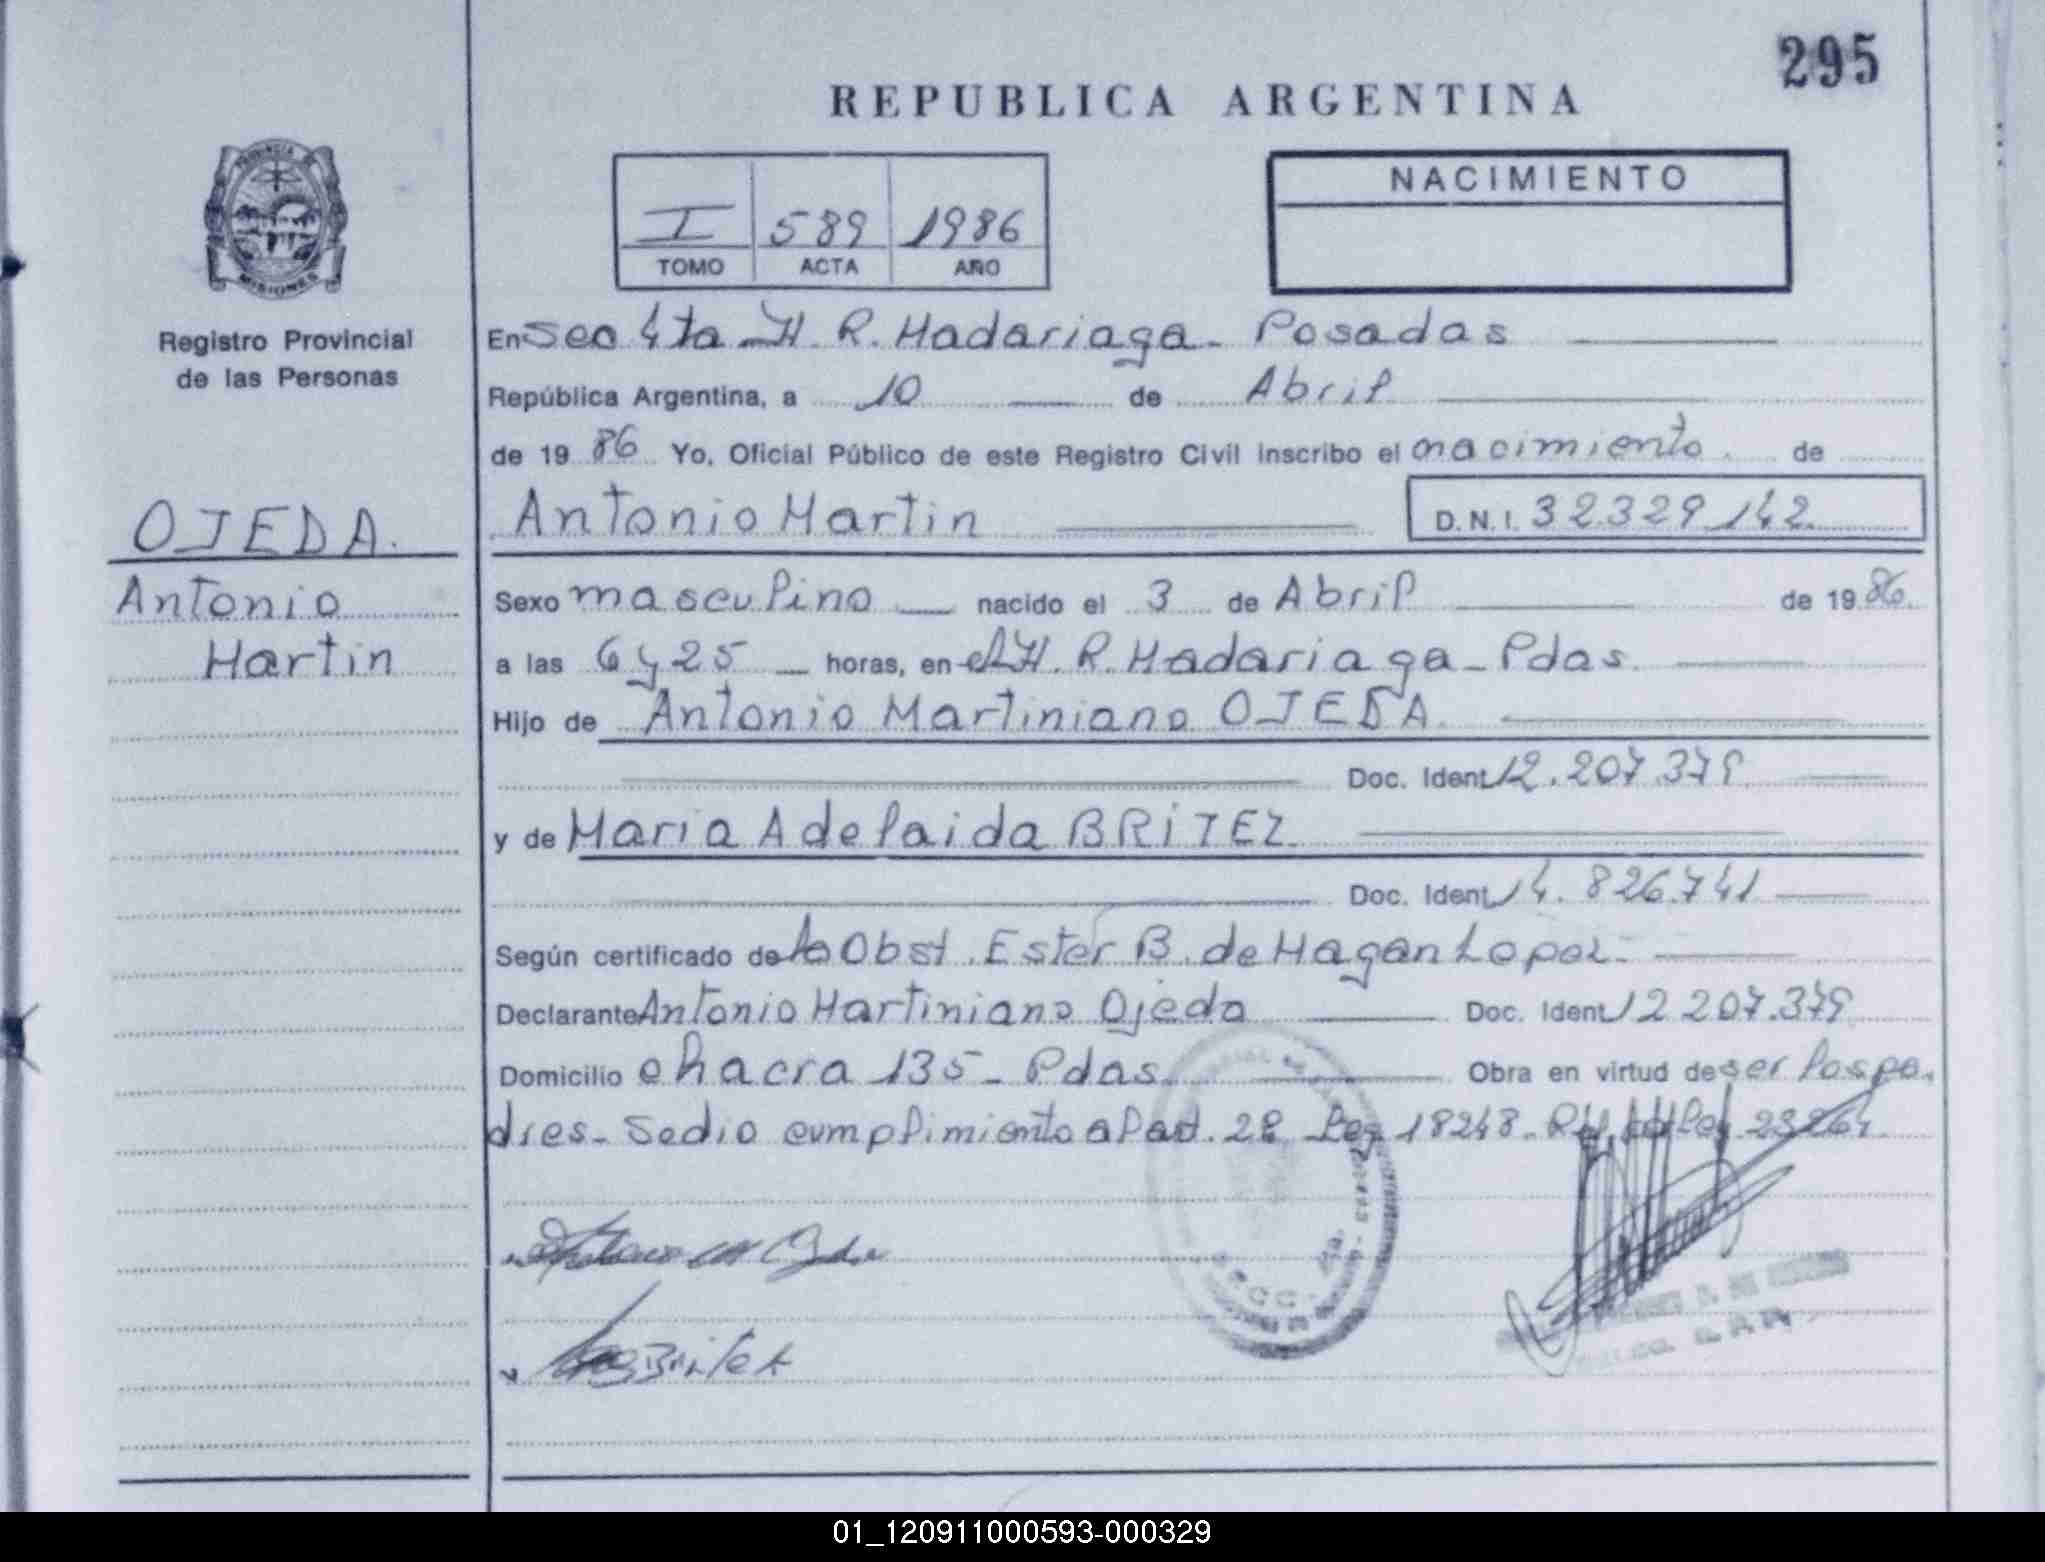 295
REPUBLICA ARGENTINA
PROVINCIA DE
MISIONES
Registro Provincial
de las Personas
I 589 1986
TOMO ACTA AÑO
NACIMIENTO
En Sec 4ta H. R. Madariaga - Posadas
República Argentina, a 10 de Abril
de 19 86 Yo, Oficial Público de este Registro Civil inscribo el nacimiento de
Antonio Martin D.N.I. 32329142
OJEDA.
Antonio
Martin
Sexo masculino nacido el 3 de Abril de 19 86
a las 6 y 25 horas, en el H. R. Madariaga - Pdas.
Hijo de Antonio Martiniano OJEDA.
Doc. Ident. 12.207.379
y de Maria Adelaida BRITEZ.
Doc. Ident. 14.826.741
Según certificado de la Obst. Ester B. de Magan Lopez.
Declarante Antonio Martiniano Ojeda Doc. Ident. 12 207.379
Domicilio chacra 135 - Pdas. Obra en virtud de ser los pa-
dres. Se dio cumplimiento al art. 28 Ley 18248. Ley 23264.
Britez
SECC. 4ta.
01_120911000593-000329